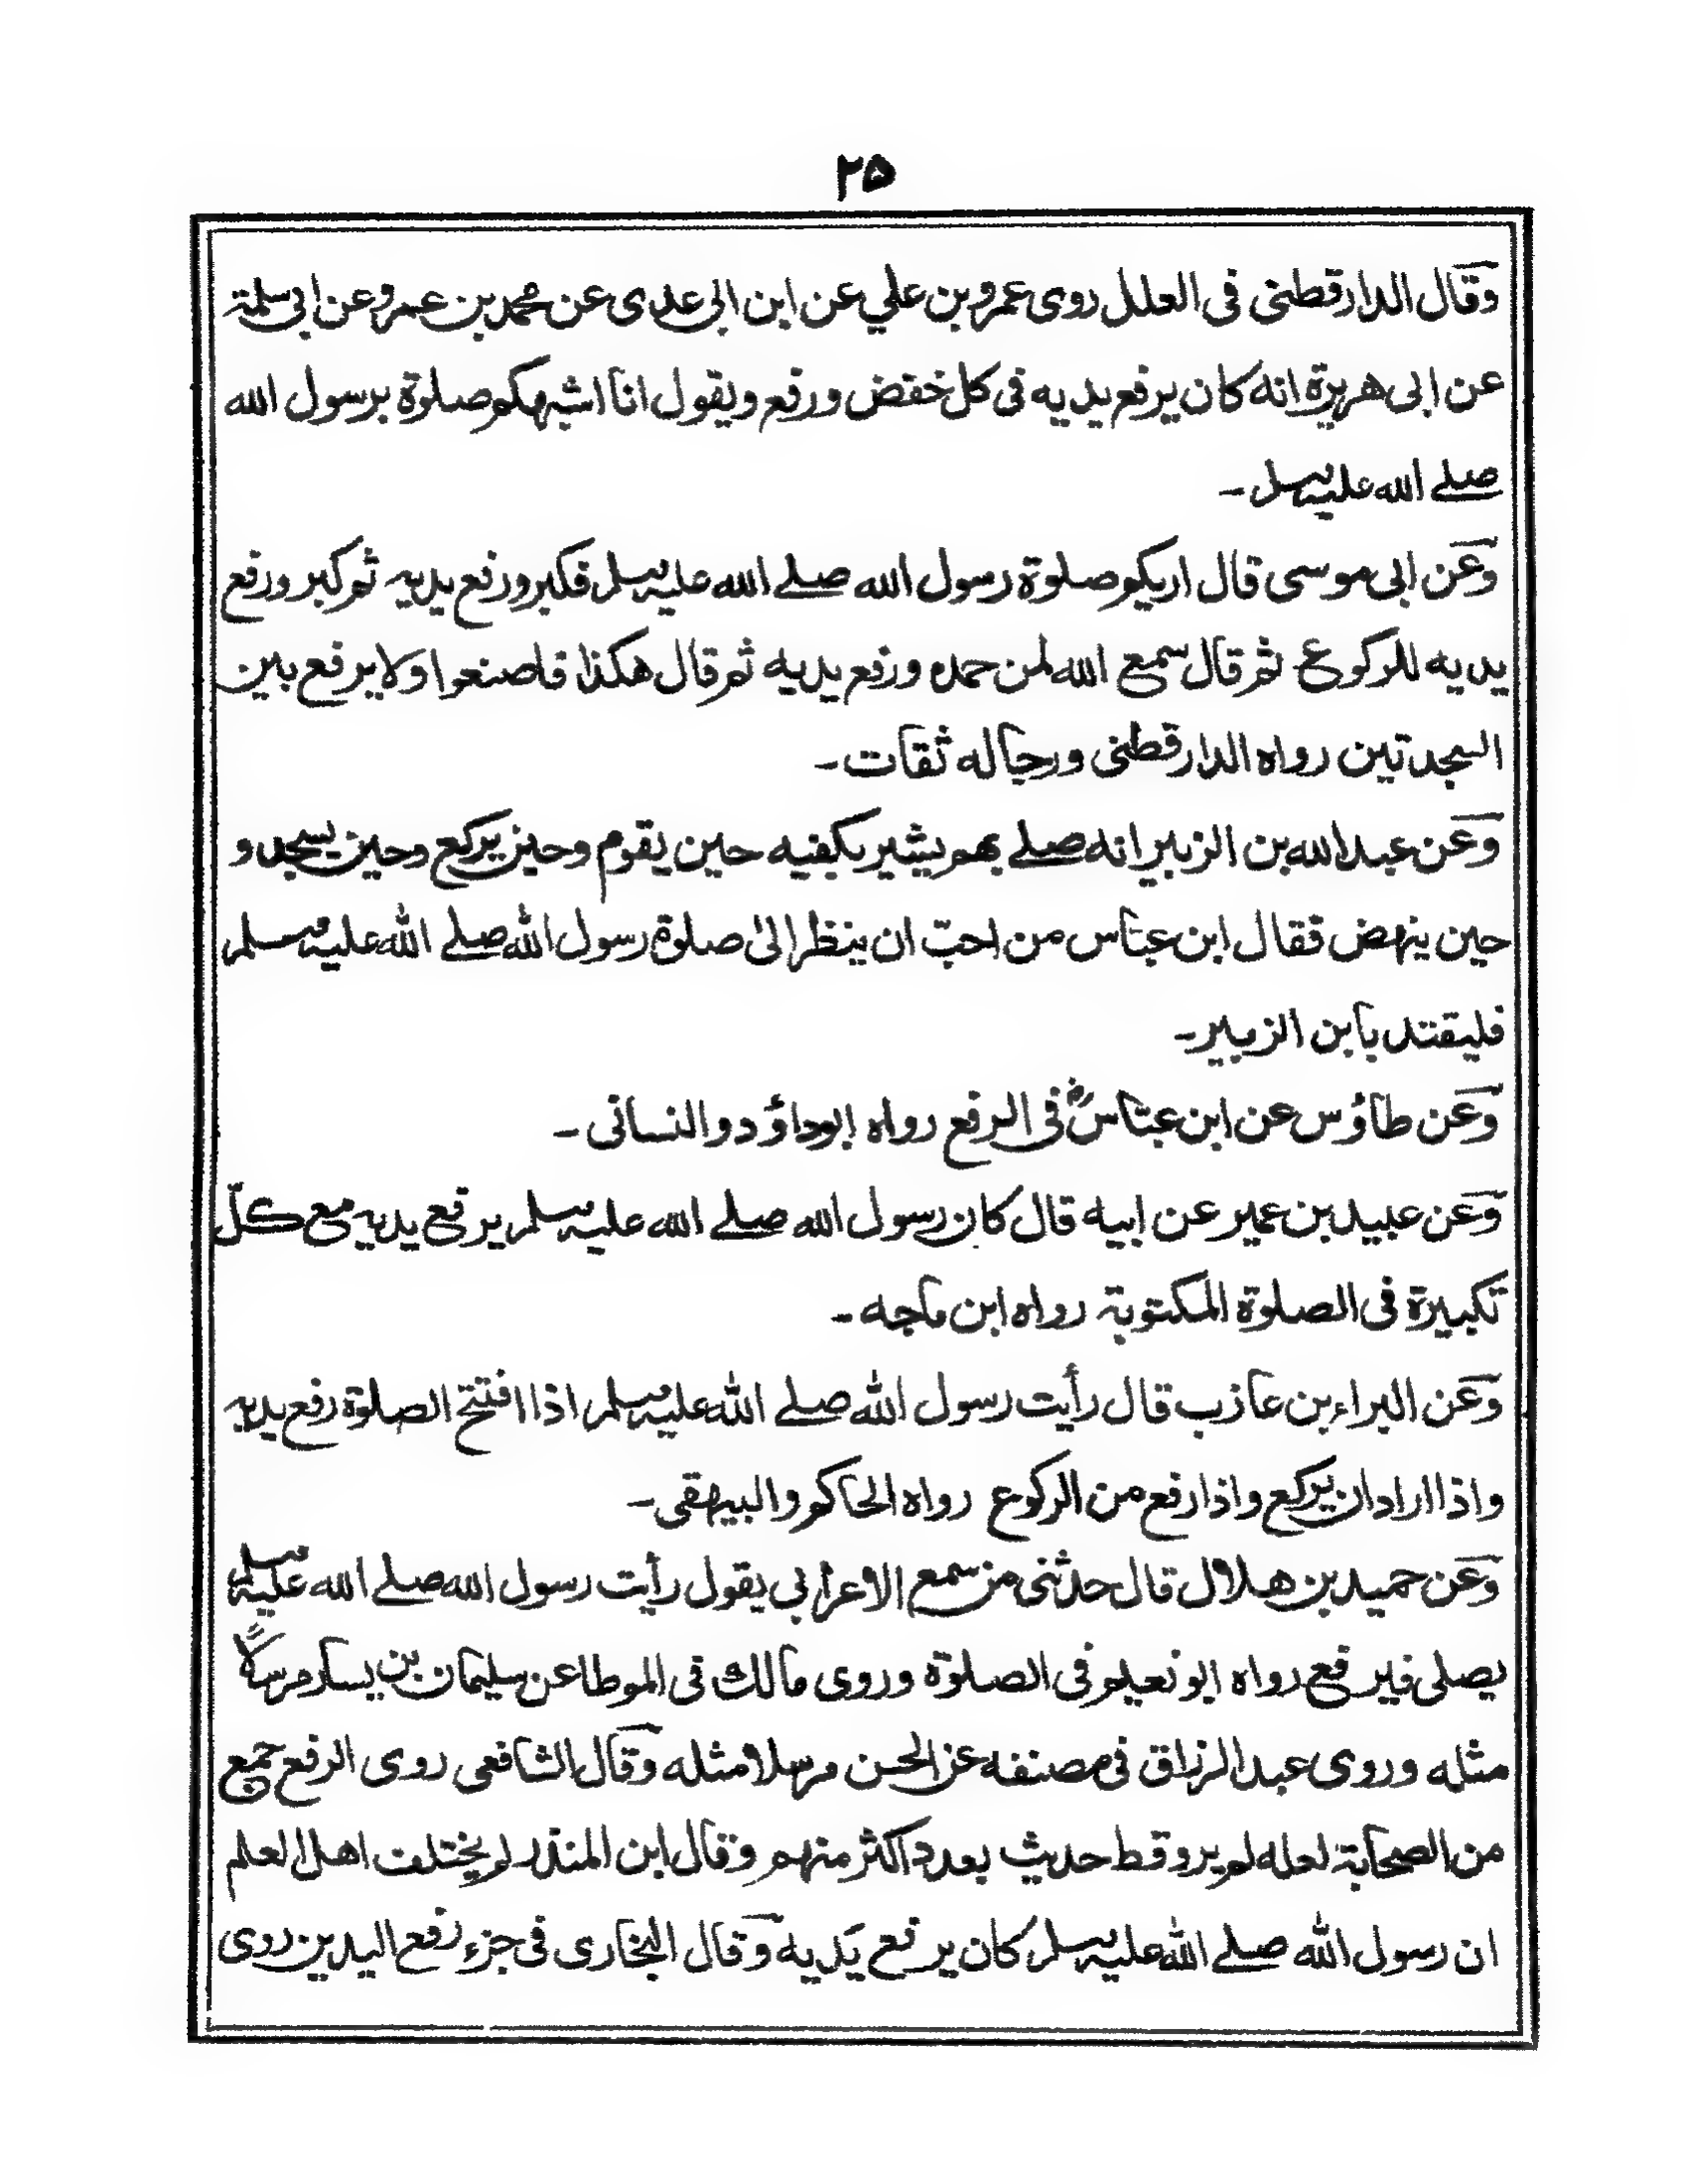 ۲۵
وقال الدارقطنى فى العلل روى عمرو بن علي عن ابن ابى عدى عن محمد بن عمرو عن ابى سلمة
عن ابى هريرة انه كان يرفع يديه فى كل خفض ورفع ويقول انا اشبهكم صلوة برسول الله
صلے الله عليه سلم -
وعن ابى موسى قال اريكم صلوة رسول الله صلے الله عليه وسلم فكبر ورفع يديه ثم كبر ورفع
يديه للركوع ثم قال سمع الله لمن حمده ورفع يديه ثم قال هكذا فاصنعوا ولا يرفع بين
السجدتين رواه الدارقطنى ورجاله ثقات -
وعن عبد الله بن الزبير انه صلے بهم يشير بكفيه حين يقوم وحين يركع وحين يسجد و
حين ينهض فقال ابن عباس من احبّ ان ينظر الىٰ صلوة رسول الله صلے الله عليه وسلم
فليقتد بابن الزبير -
وعن طاؤس عن ابن عباسؓ فى الرفع رواه ابوداؤد والنسائى -
وعن عبيد بن عمير عن ابيه قال كان رسول الله صلے الله عليه وسلم يرفع يديه مع كلّ
تكبيرة فى الصلوة المكتوبة رواه ابن ماجه -
وعن البراء بن عازب قال رأيت رسول الله صلے الله عليه وسلم اذا افتتح الصلوة رفع يديه
واذا اراد ان يركع واذا رفع من الركوع رواه الحاكم والبيهقى -
وعن حميد بن هلال قال حدثنى من سمع الاعرابى يقول رأيت رسول الله صلے الله عليه وسلم
يصلى فيرفع رواه ابو نعيم فى الصلوة وروى مالك فى الموطا عن سليمان بن يسار مرسلاً
مثله وروى عبد الرزاق فى مصنفه عن الحسن مرسلا مثله وقال الشافعى روى الرفع جمع
من الصحابة لعله لم يرو قط حديث بعدد اكثر منهم وقال ابن المنذر لم يختلف اهل العلم
ان رسول الله صلے الله عليه وسلم كان يرفع يديه وقال البخارى فى جزء رفع اليدين روى